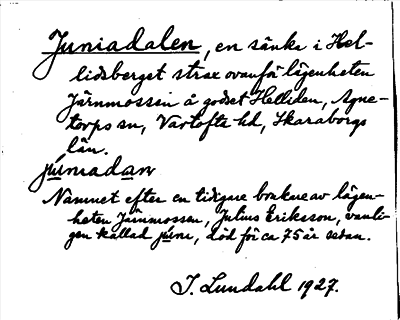 Juniadalen, en sänka i Hel-
lidsberget strax ovanför lägenheten
Järnmossen å godset Helliden, Agne-
torps sn, Vartofta hd, Skaraborgs
län.
júniadan
Namnet efter en tidigare brukare av lägen-
heten Järnmossen, Julius Eriksson, vanli-
gen kallad júne, död för ca 75 år sedan.
J. Lundahl 1927.